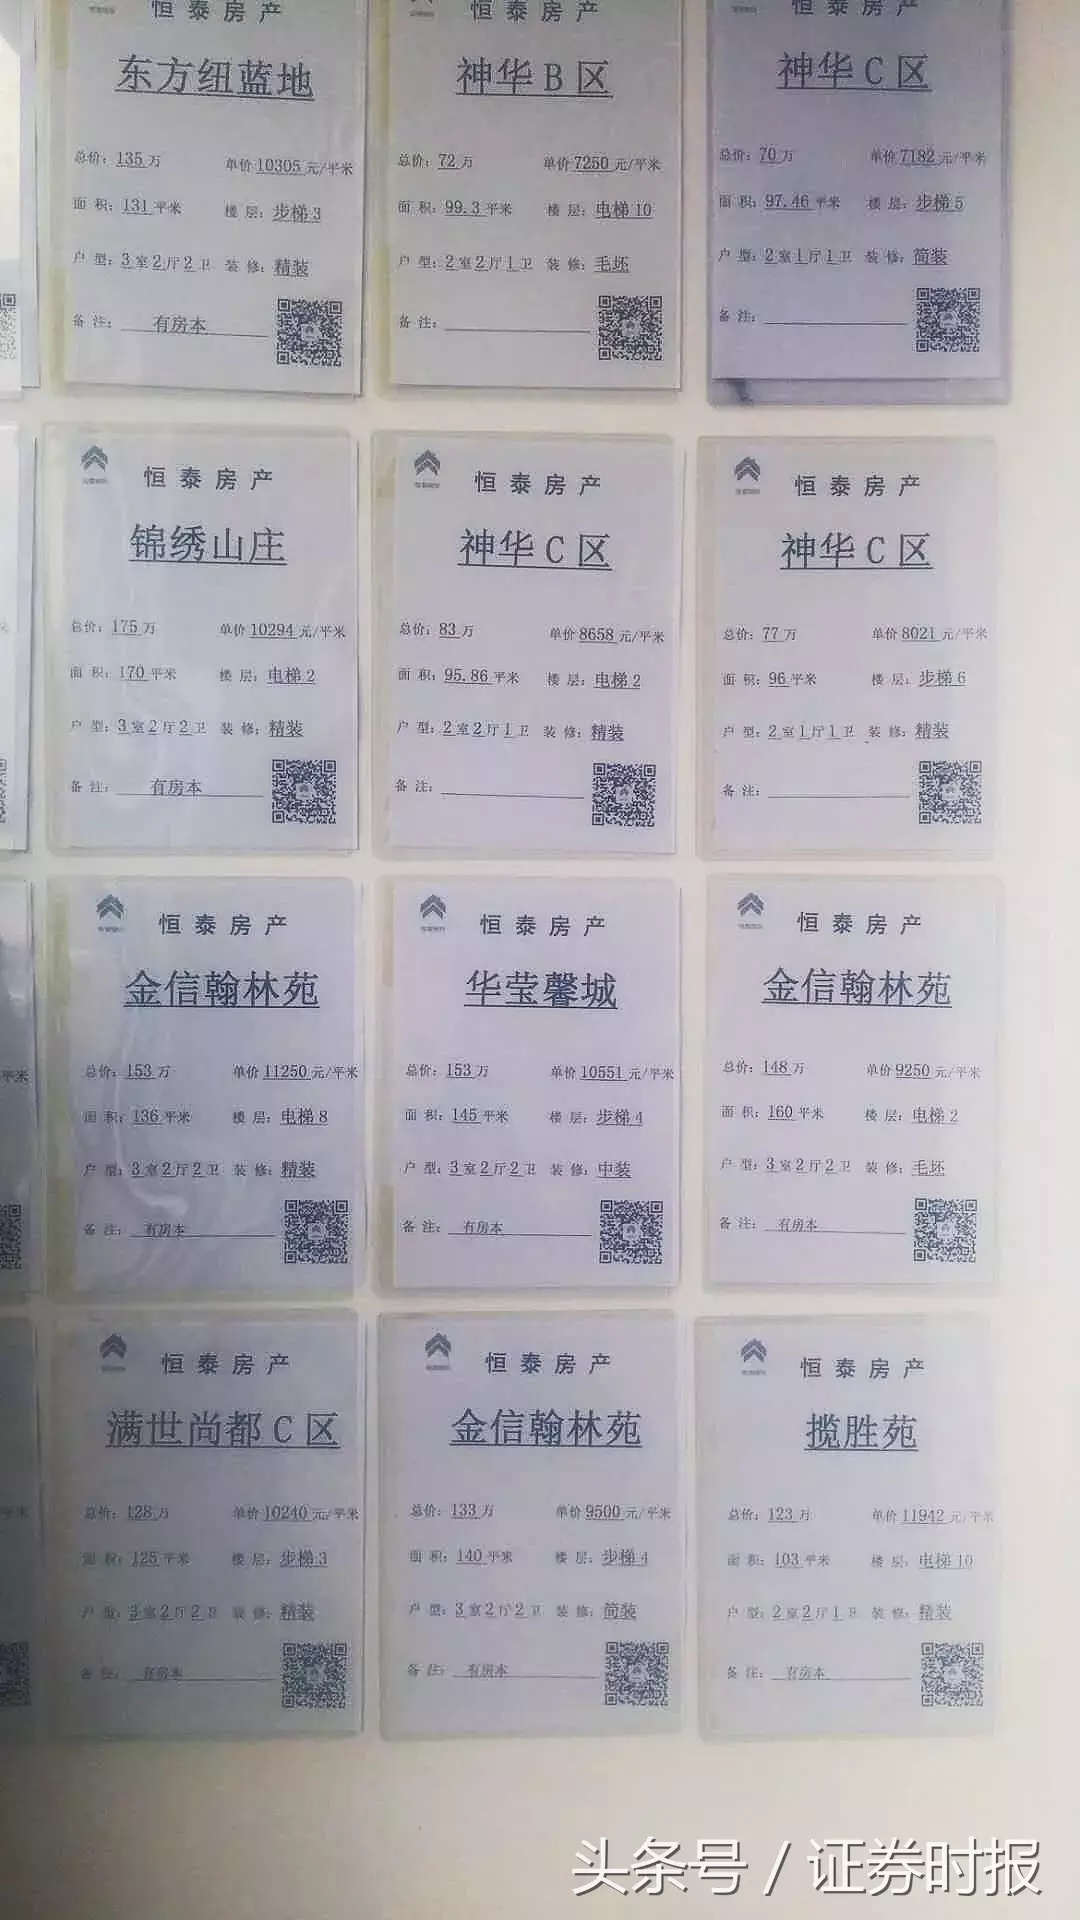 恒泰房产
东方纽蓝地
总价：135万 单价10305元/平米
面 积：131平米 楼 层：步梯3
户 型：3室2厅2卫 装 修：精装
备 注： 有房本
恒泰房产
神华B区
总价：72万 单价7250元/平米
面 积：99.3平米 楼 层：电梯10
户 型：2室2厅1卫 装 修：毛坯
备 注：
恒泰房产
神华C区
总价：70万 单价7182元/平米
面 积：97.46平米 楼 层：步梯5
户 型：2室1厅1卫 装 修：简装
备 注：
恒泰房产
锦绣山庄
总价：175万 单价10294元/平米
面 积：170平米 楼 层：电梯2
户 型：3室2厅2卫 装 修：精装
备 注： 有房本
恒泰房产
神华C区
总价：83万 单价8658元/平米
面 积：95.86平米 楼 层：电梯2
户 型：2室2厅1卫 装 修：精装
备 注：
恒泰房产
神华C区
总价：77万 单价8021元/平米
面 积：96平米 楼 层：步梯6
户 型：2室1厅1卫 装 修：精装
备 注：
平米
恒泰房产
金信翰林苑
总价：153万 单价11250元/平米
面 积：136平米 楼 层：电梯8
户 型：3室2厅2卫 装 修：精装
备 注： 有房本
恒泰房产
华莹馨城
总价：153万 单价10551元/平米
面 积：145平米 楼 层：步梯4
户 型：3室2厅2卫 装 修：中装
备 注： 有房本
恒泰房产
金信翰林苑
总价：148万 单价9250元/平米
面 积：160平米 楼 层：电梯2
户 型：3室2厅2卫 装 修：毛坯
备 注： 有房本
平米
恒泰房产
满世尚都C区
总价：128万 单价10240元/平米
面 积：125平米 楼 层：步梯3
户 型：3室2厅2卫 装 修：精装
备 注： 有房本
恒泰房产
金信翰林苑
总价：133万 单价9500元/平米
面 积：140平米 楼 层：步梯4
户 型：3室2厅2卫 装 修：简装
备 注： 有房本
恒泰房产
揽胜苑
总价：123万 单价11942元/平米
面 积：103平米 楼 层：电梯10
户 型：2室2厅1卫 装 修：精装
备 注： 有房本
头条号 / 证券时报